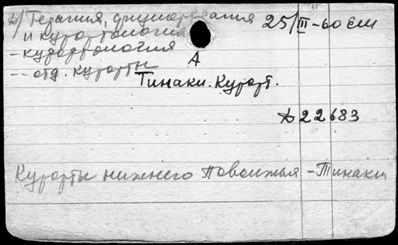 2) Терапия, физиотерапия 25/III-60 ЕМ
и курортология
- курортология
-- отд. курорты
А
Тинаки. Курорт.
22683
Курорты нижнего Поволжья - Тинаки